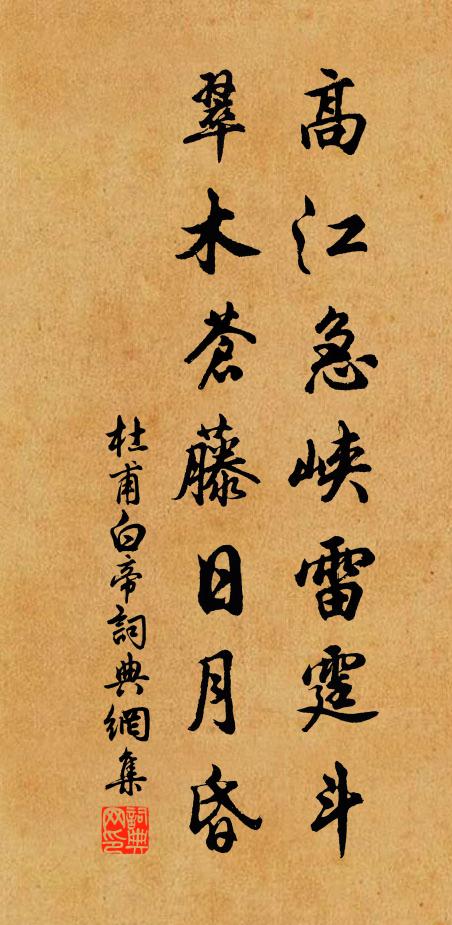 高江急峽雷霆斗
翠木蒼藤日月昏
杜甫白帝詞典網集
詞典网印